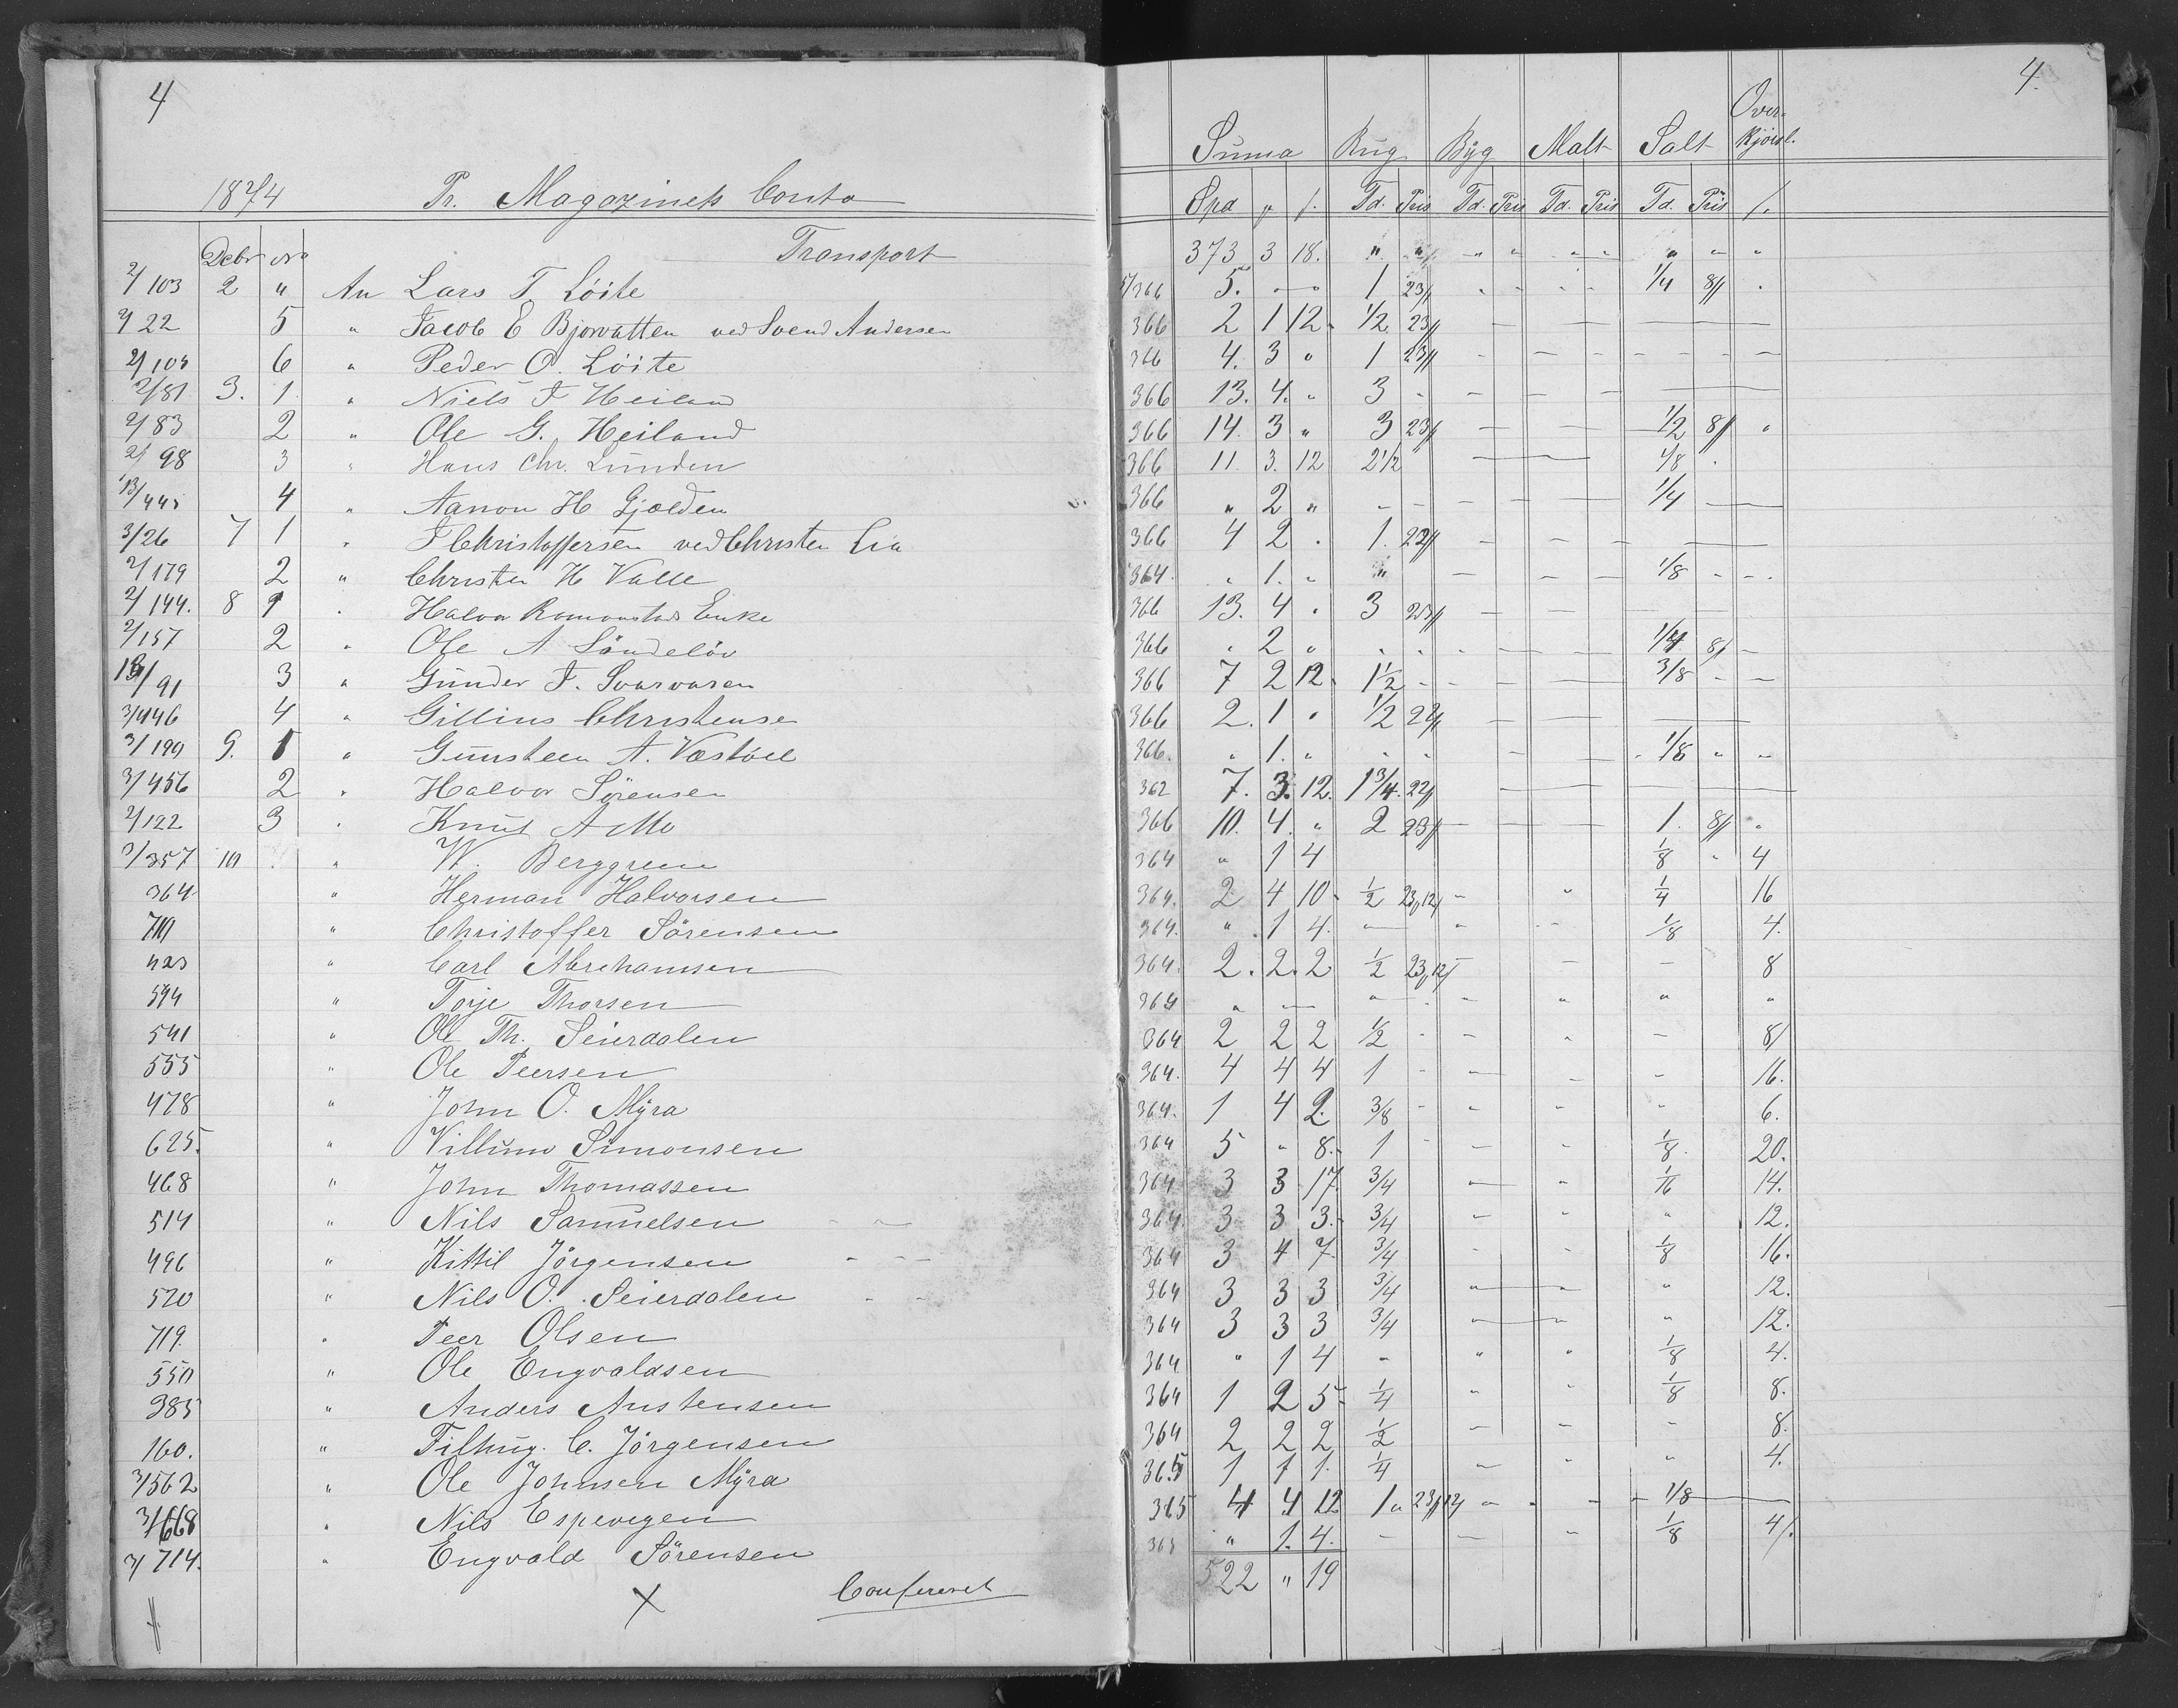 4
1874 Pr. Magazinets Conto
Transport
Debr No
2/103 2 " An Lars T. Löite
2/22 5 " Jacob E Bjorvatten ved Svend Andersen
2/103 6 " Peder O. Löite
2/81 3. 1. " Niels T Heiland
2/83 2 " Ole G. Heiland
2/98 3 " Hans Chr. Lunden
13/445 4 " Aanon H Gjelden
3/26 7 1 " Christoffersen ved Christen Lia
2/179 2 " Christen H Valle
2/144. 8 1 " Halvor Enke
2/157 2 " Ole A Söndelöv
/91 3 " Gunder T. Svarvaren
3/446 4 " Gillius Christense
3/190 9. 1 " Gunsteen A. Vastöll
3/456 2 " Halvor Sörensen
2/122 3 " Knut A Mo
3/357 10 " W. Berggreen
364 " Herman Halvorsen
710 " Christoffer Sörensen
423 " Carl Abrehamsen
594 " Torje Thorsen
541 " Ole Th. Seierdalen
555 " Ole Peersen
478 " John O. Myra
625. " Villum Simonsen
468 " John Thomassen
514 " Nils Samuelsen
496 " Kittil Jörgensen
520 " Nils O. Seierdalen
719. " Peer Olsen
550 " Ole Engvaldsen
385 " Anders Austensen
160. " C. Jörgensen
3/562 " Ole Johnsen Myra
3/668 " Nils Espevigen
3/714. " Engvald Sörensen
X Confereret
4.
Suma Rug Byg Malt Salt Over-
kjörsl.
Spd Td. Pris Td. Pris Td. Pris Td. Pris
373 3 18. " " " " " " " " "
5/366 5. 1 23 1/4 8
366 2 1 12. 1/2 23
366 4. 3 " 1 23
366 13. 4. " 3
366 14. 3 " 3 23 1/2 8 "
366 11. 3. 12 2 1/2 1/8
366 " 2 " 1/4
366 4 2 . 1. 22
364. " 1. " " 1/8
366 13. 4 . 3 23
366 " 2 " 1/4 8
366 7 2 12. 1 1/2 3/8
366 2. 1 . 1/2 22
366. " 1. " 1/8 " "
362 7. 3. 12. 1 3/4. 22
366 10. 4. " 2 23 1. 8 "
364 " 1 4 1/8 " 4
364. 2 4 10. 1/2 23,12 1/4 16
364. " 1 4. 1/8 4.
364. 2. 2. 2 1/2 23,12 8
364 " " " " "
364 2 2 2 1/2 8
364. 4 4 4 1 16.
364. 1 4 2. 3/8 6.
364 5 " 8. 1 1/8. 20.
364 3 3 17 3/4 1/16 14.
364. 3 3 3. 3/4 " 12.
364 3 4 7 3/4 1/8 16.
364 3 3 3 3/4 " 12.
364 3 3 3 3/4 " 12.
364 " 1 4 " " " 1/8 4.
364 1 2 5 1/4 " " 1/8 8.
364 2 2 2 1/2 8.
365 1 1 1. 1/4 " 4.
365 4 4 12 1 " 23,12 1/8
365 " 1. 4. 1/8 4
522 " 19